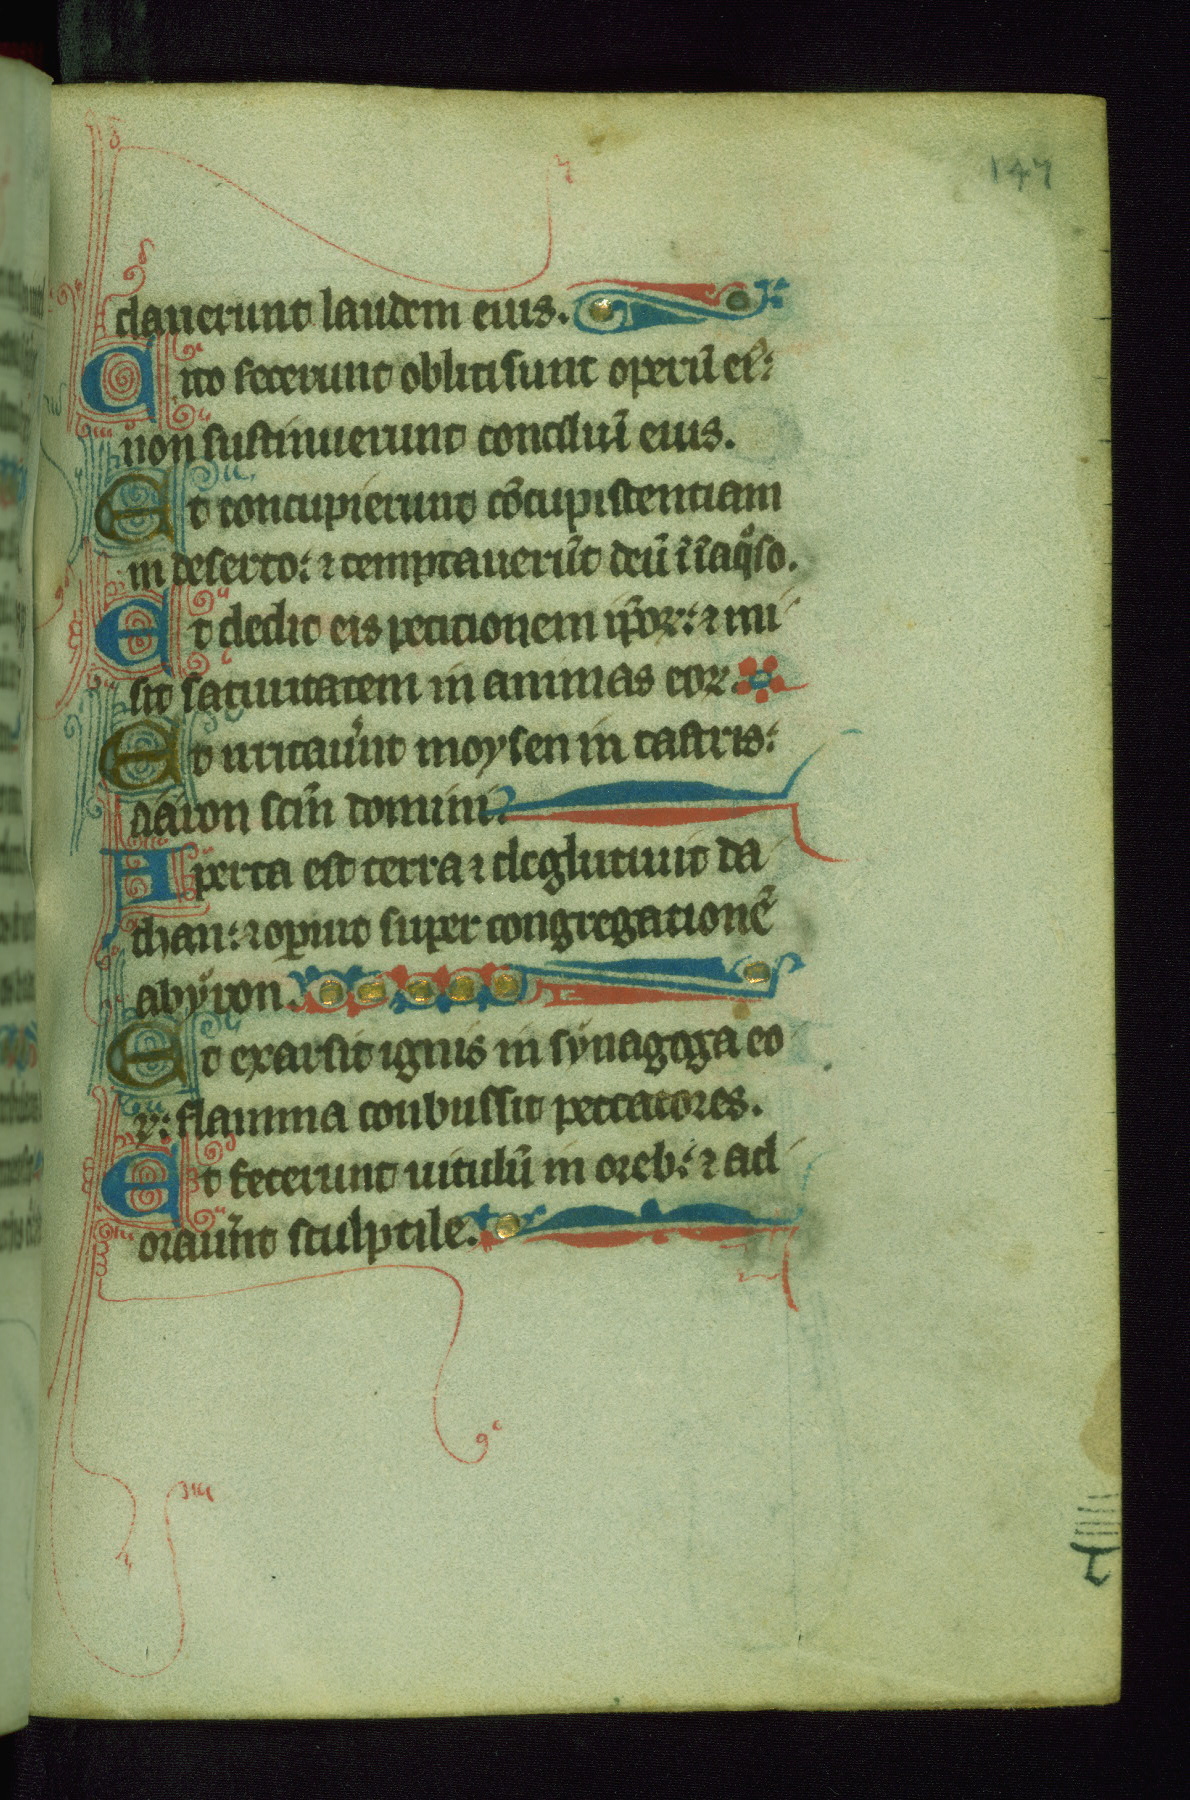 147
dauerunt laudem eius.
Cito fecerunt obliti sunt operū eiꝰ:
non sustinuerunt consiluī eius.
Et concupierunt cōcupiscentiam
in deserto: ⁊ temptauerūt deū ī īaqͦso.
Et dedit eis peticionem ip̄oꝝ: ⁊ mi
sit saturitatem in animas eoꝝ.
Et irritauͬnt moysen in castris:
aaron scm̄ domini.
Aperta est terra ⁊ deglutiuit da
than: ⁊ oꝑuit super congregationē
abyron.
Et exarsit ignis in synagoga eo
ꝝ: flamma conbussit peccatores.
Et fecerunt uitulū in oreb: ⁊ ad
orauͬnt sculptile.